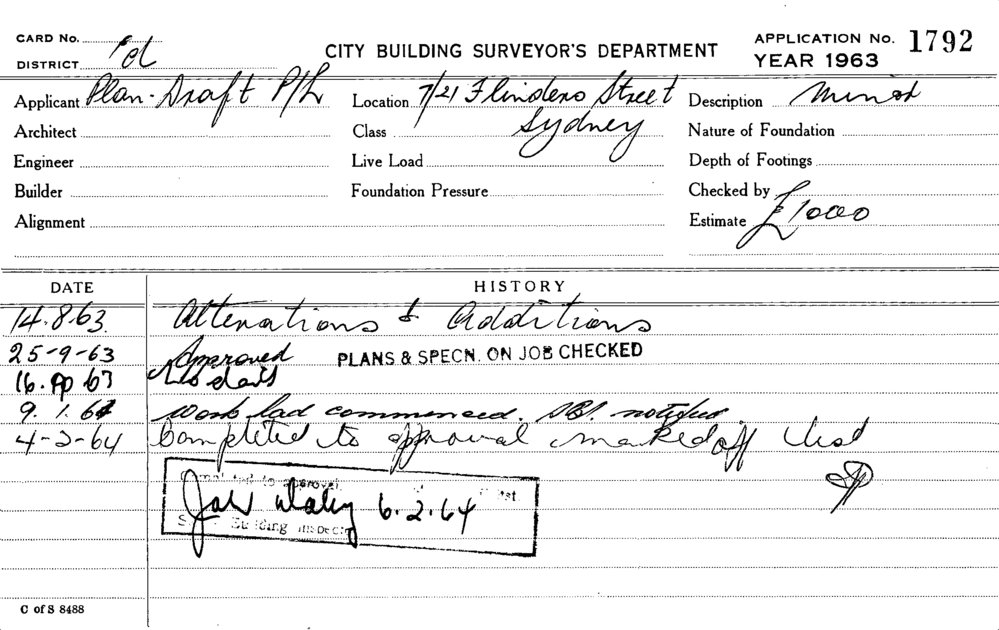 CARD No.
CITY BUILDING SURVEYOR'S DEPARTMENT
APPLICATION No. 1792
DISTRICT
YEAR 1963
Applicant Plan-Draft P/L
Location 7/21 Flinders Street
Sydney
Description Minor
Architect
Class
Nature of Foundation
Engineer
Live Load
Depth of Footings
Builder
Foundation Pressure
Checked by
Alignment
Estimate £1000
DATE HISTORY
14.8.63. Alterations & Additions
25-9-63 Approved PLANS & SPECN. ON JOB CHECKED
16. 63
9.1.64 Work had commenced. notified
4-2-64 Completed to approval marked off list
Completed to approval. list.
6.2.64
Building Inspector
C of S 8488